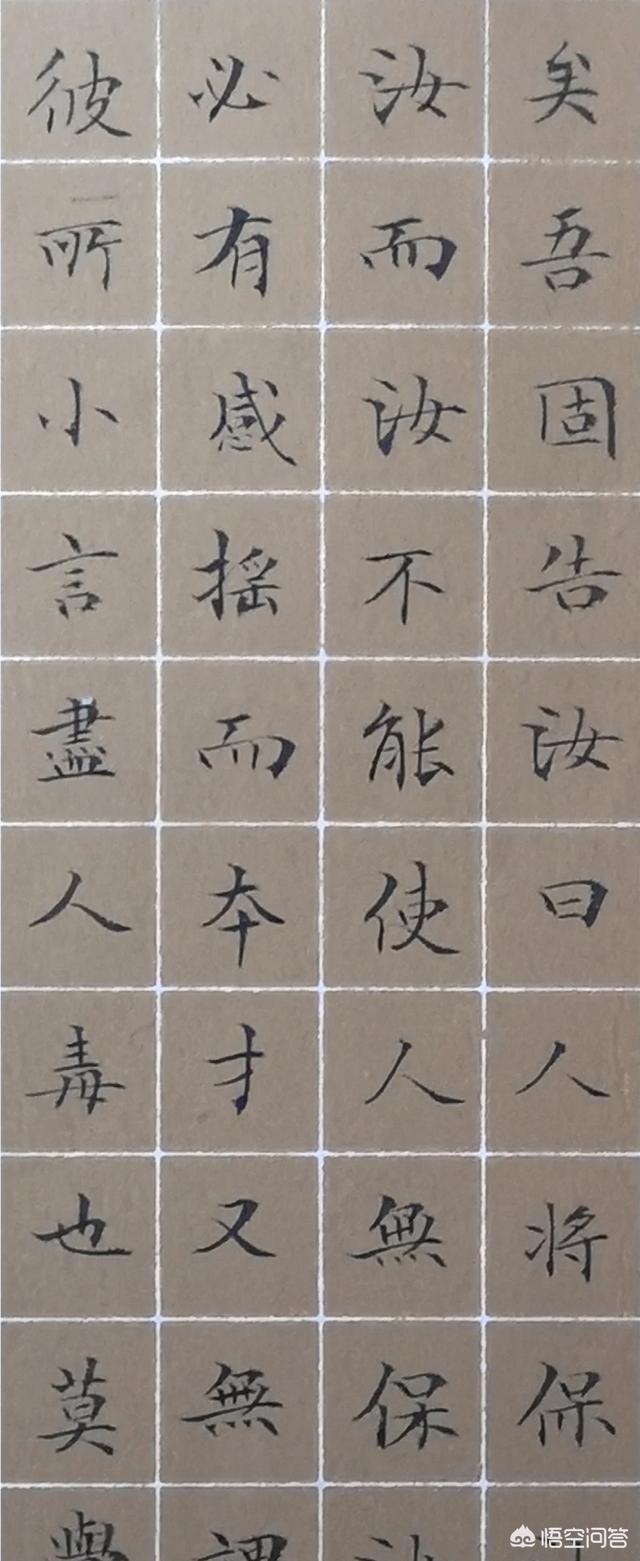 矣吾固告汝曰人将保
汝而汝不能使人無保
必有感搖而本才又無
彼所小言盡人毒也莫
悟空问答